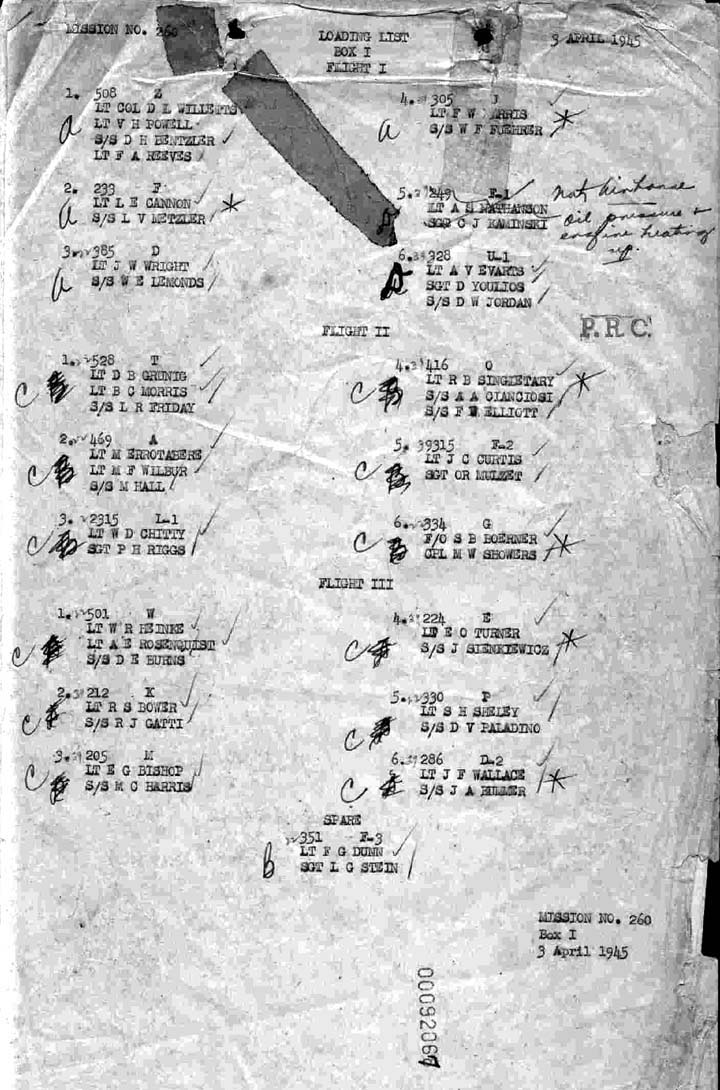 MISSION NO. 260
LOADING LIST
BOX I
FLIGHT I
3 APRIL 1945
1. 508 Z
LT COL D L WILLETTS
a LT V H POWELL
S/S D H BENTZLER
LT F A REEVES
2. 233 F
a LT L E CANNON *
S/S L V METZLER
3. 385 D
LT J W WRIGHT
a S/S W E LEMONDS
4. 305 J
LT F W *
a S/S W F FOEHRER
5. 249 F-1
LT A S NATHANSON
SGT C J KAMINSKI
Not Airborne
Oil pressure &
engine heating
up.
6. 328 U-1
LT A V EVARTS
SGT D YOULIOS
S/S D W JORDAN
P.R.C.
FLIGHT II
1. 528 T
LT D B GRUNIG
C LT B C MORRIS
S/S L R FRIDAY
2. 469 A
LT M ERROTABERE
C LT M F WILBUR
S/S M HALL
3. 2315 L-1
LT W D CHITTY
C SGT P H RIGGS
4. 416 O
LT R B SINGLETARY *
C S/S A A CIANCIOSI
S/S F W ELLIOTT
5. 39315 F-2
LT J C CURTIS
C SGT OR MULZET
6. 334 G
F/O S B BOERNER
C CPL M W SHOWERS *
FLIGHT III
1. 501 W
LT W R HEINKE
LT A E ROSENQUIST
C S/S D E BURNS
2. 212 K
LT R S BOWER
C S/S R J GATTI
3. 205 M
LT E G BISHOP
C S/S M C HARRIS
4. 224 E
LT E O TURNER
C S/S J SIENKIEWICZ *
5. 330 P
LT S H SEELEY
C S/S D V PALADINO
6. 286 D-2
LT J F WALLACE
C S/S J A BULMER *
SPARE
351 F-3
LT F G DUNN
b SGT L G STEIN
MISSION NO. 260
Box I
3 April 1945
00092067